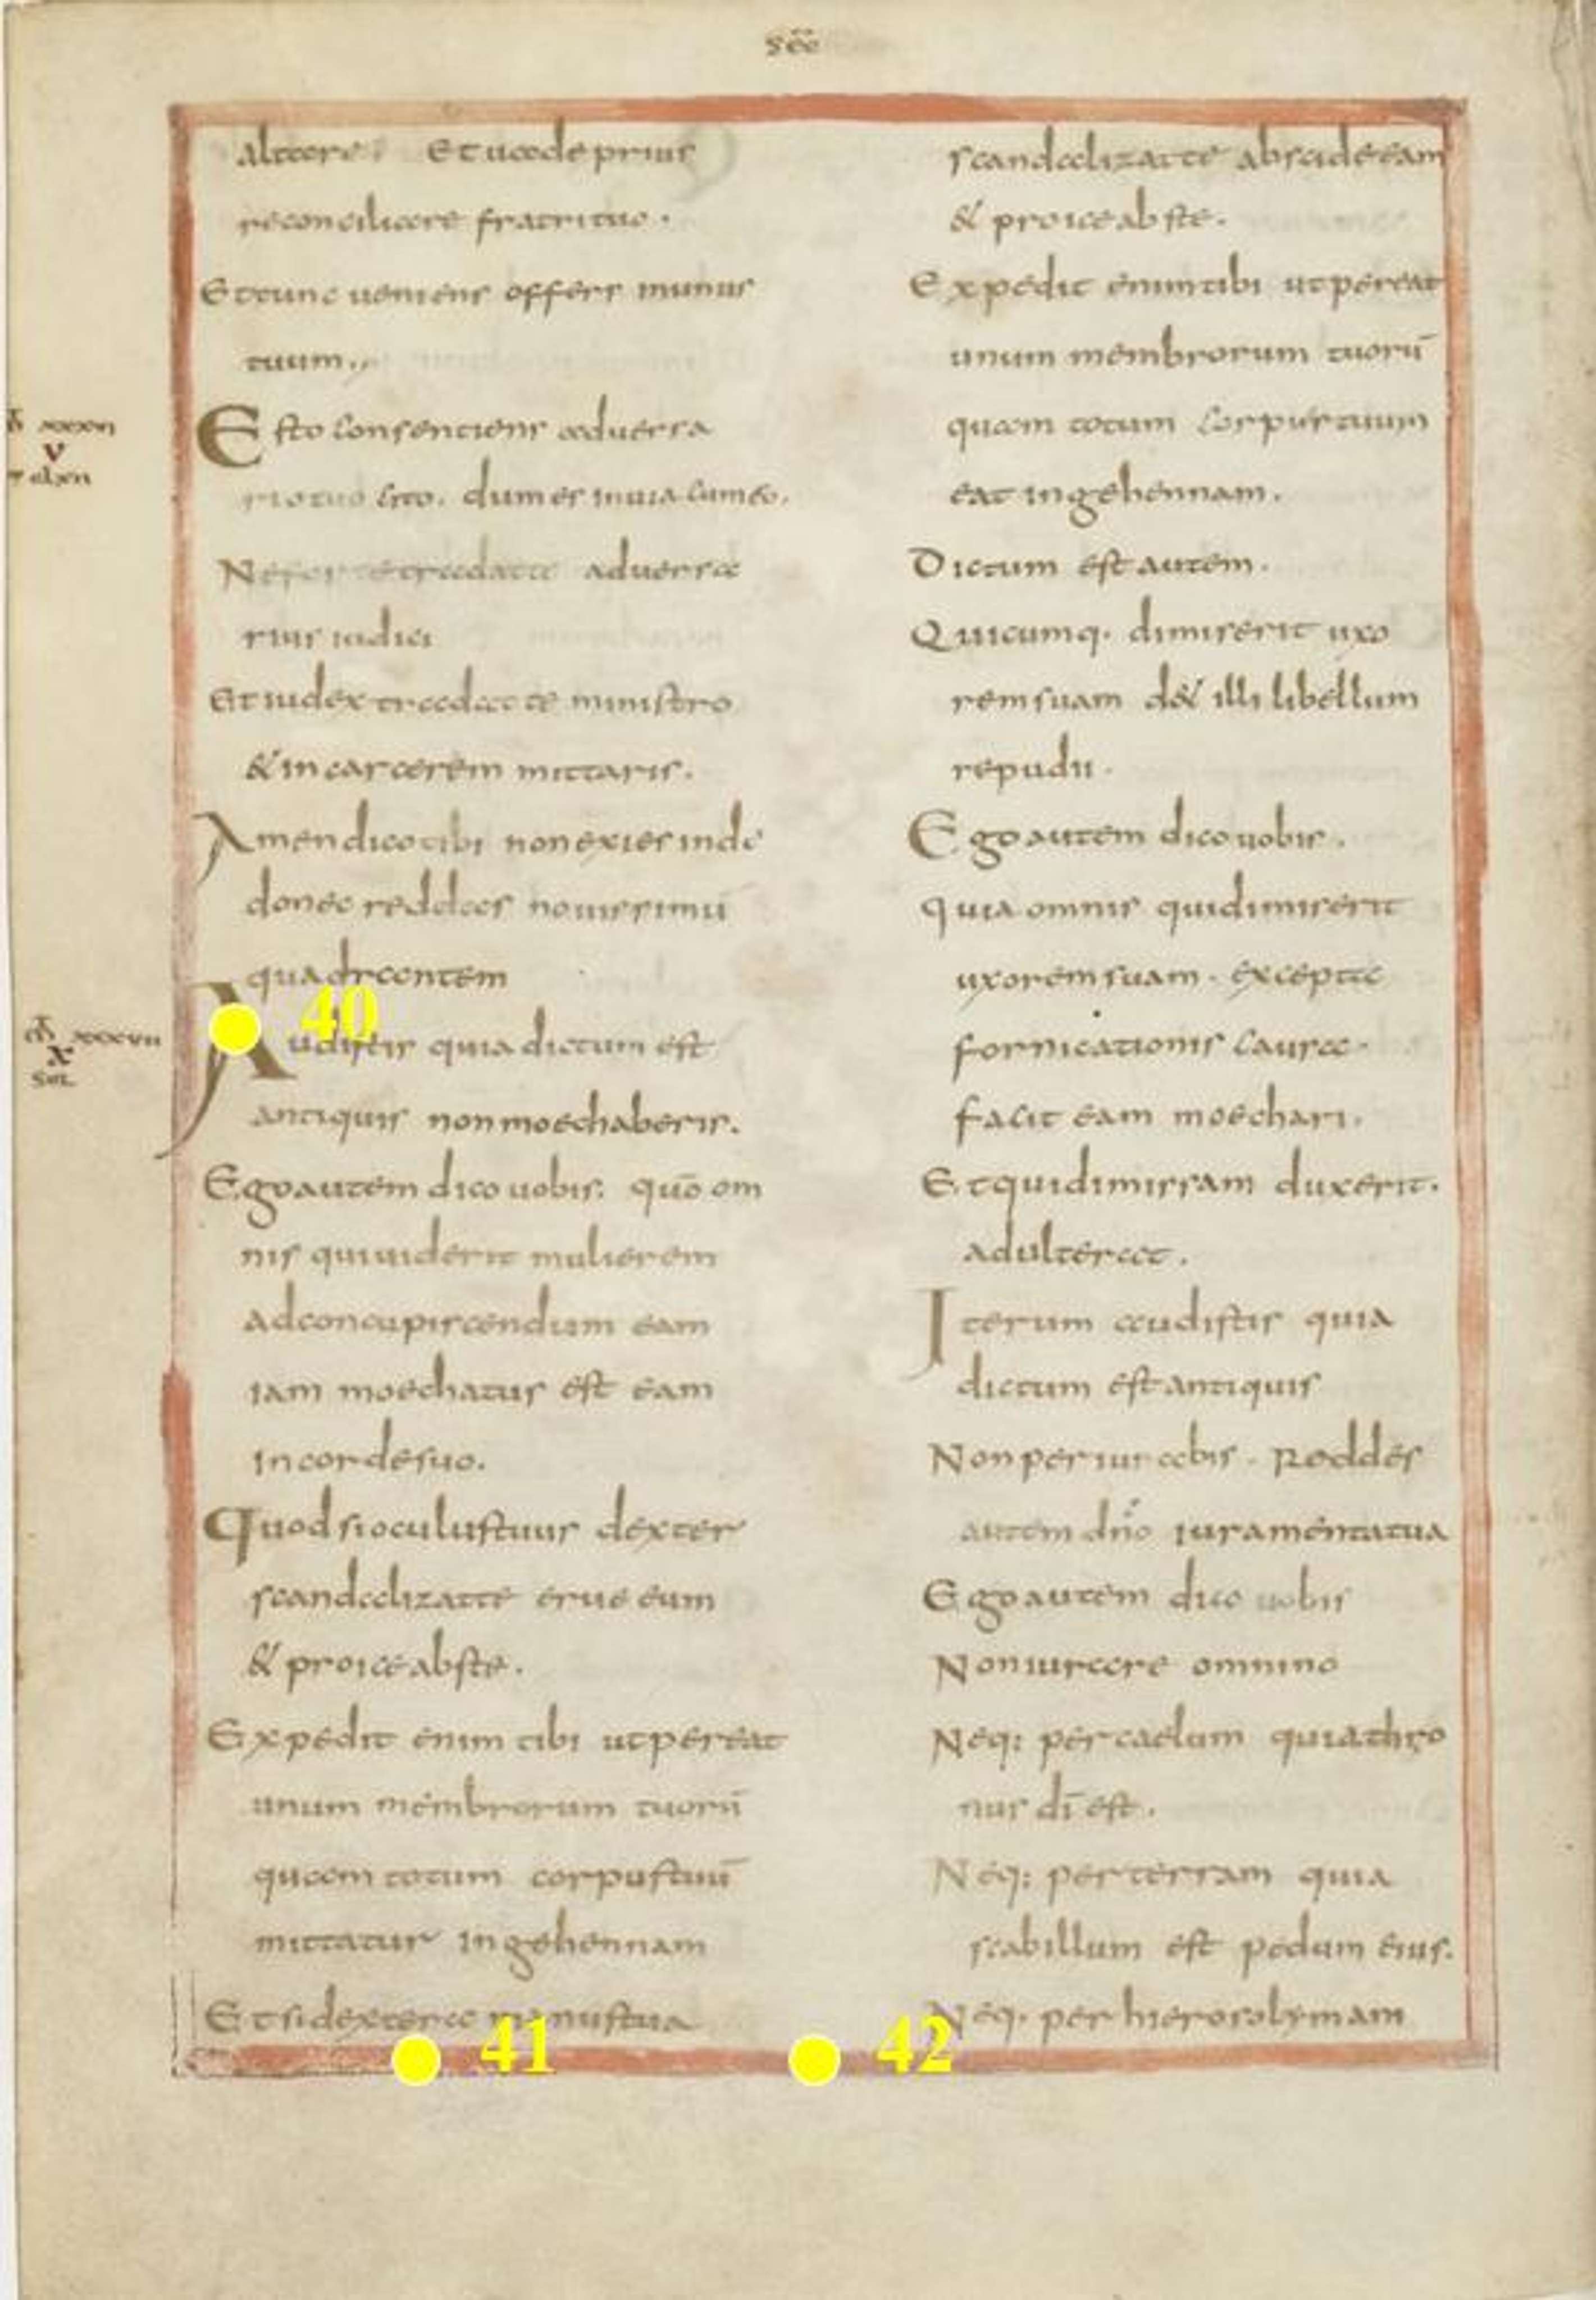 altare. Et uade prius
reconciliare fratri tuo.
Et tunc ueniens offers munus
tuum.,
Esto consentiens aduersa
rio tuo cito. dum es in uia cum eo.
Ne forte tradat te aduersa
rius iudici
Et iudex tradat te ministro
& in carcerem mittaris.
Amen dico tibi non exies inde
donec reddas nouissimū
quadrantem
40
Audistis quia dictum est
antiquis non moechaberis.
Ego autem dico uobis. quō om
nis qui uiderit mulierem
ad concupiscendum eam
iam moechatus est eam
in corde suo.
Quod si oculus tuus dexter
scandalizat te erue eum
& proice abs te.
Expedit enim tibi ut pereat
unum membrorum tuorū
quam totum corpus tuū
mittatur in gehennam
Et si dextera manus tua
41
scandalizat te abscide eam
& proice abs te.
Expedit enim tibi ut pereat
unum membrorum tuorū
quam totum corpus tuum
eat in gehennam.
Dictum est autem.
Quicumq. dimiserit uxo
rem suam d& illi libellum
repudii.
Ego autem dico uobis.
quia omnis qui dimiserit
uxorem suam. excepta
fornicationis causa.
facit eam moechari.
Et qui dimissam duxerit.
adulterat.
Iterum audistis quia
dictum est antiquis
Non periurabis. Reddes
autem dn̄o iuramenta tua
Ego autem dico uobis
Non iurare omnino
Neq: per caelum quia thro
nus dī est.
Neq: per terram quia
scabillum est pedum eius.
Neq. per hierosolymam
42